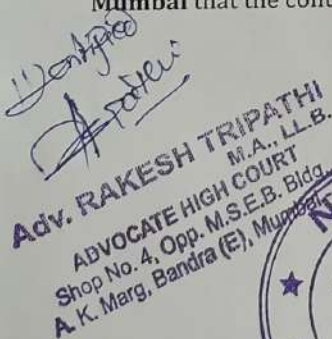 Mumbai that the cont
Identified
Adv. RAKESH TRIPATHI
M.A., LL.B.
ADVOCATE HIGH COURT
Shop No. 4, Opp. M.S.E.B. Bldg.
A. K. Marg, Bandra (E), Mumbai